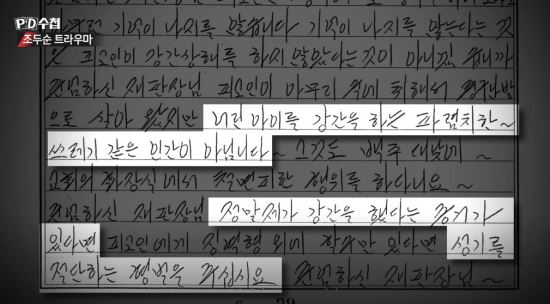 PD수첩
조두순 트라우마
기억이 나지를 않습니다 기억이 나지를 않는다는 것
은 피고인이 강간상해를 하지 않았다는것이 아니겠읍니까
존경하신 재판장님 피고인이 아무리 술에 취해서
으로 살아 왔지만 어린아이를 강간을 하는 파렴치한~
쓰레기 같은 인간이 아닙니다~ 그것도 백주 대낮에~
교회의 화장실에서 철면피한 행위를 하다니요~
존경하신 재판장님 정말제가 강간을 했다는 증거가
있다면 피고인에게 징역형 외에 할수만 있다면 성기를
절단하는 형벌을 주십시요 존경하신 재판장님~